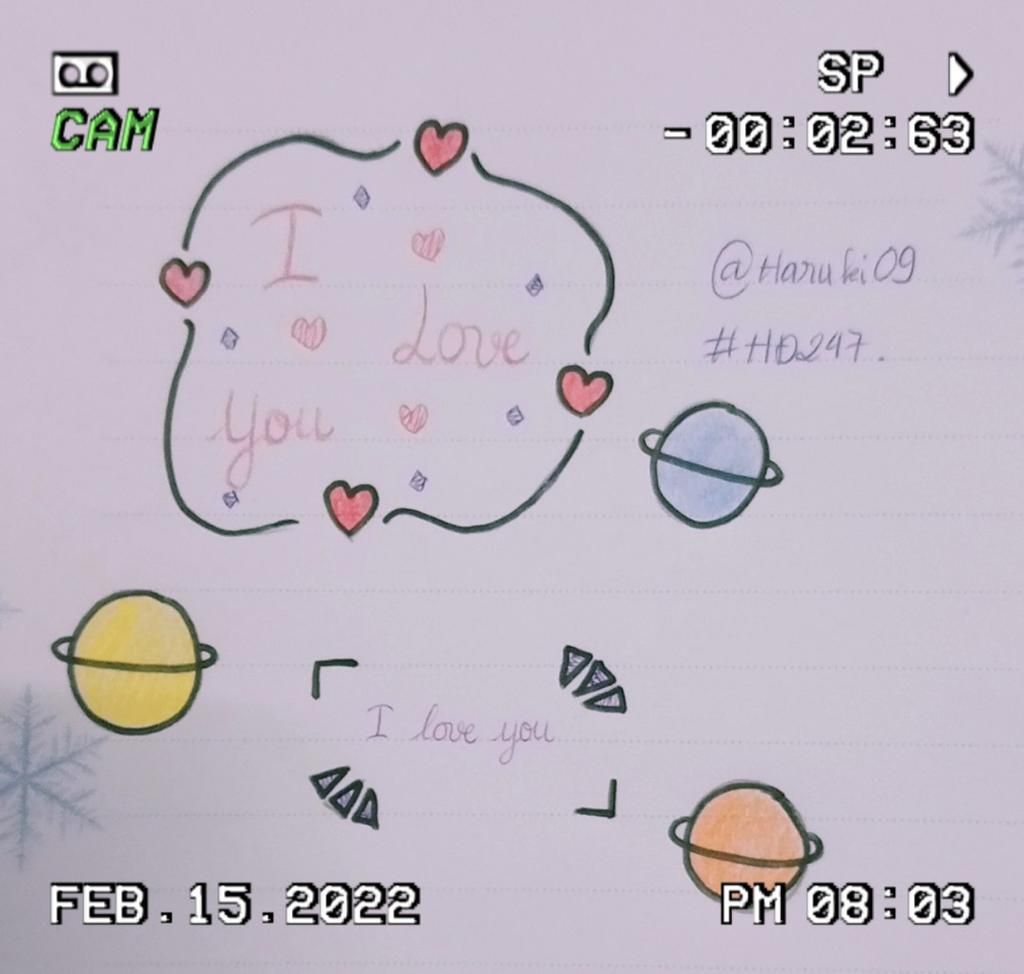 SP
CAM
-00:02:63
I
@Haruki09
Love
#HD247.
You
I love you
FEB.15.2022
PM 08:03